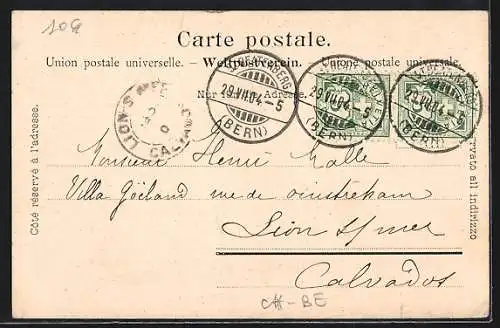 Carte postale.
Union postale universelle. – Weltpostverein. – Unione postale universale.
Nur für die Adresse.
BEATENBERG
29.VII.04.-5
(BERN)
29.VII.04.-5
(BERN)
29.VII.04.-5
(BERN)
LION-S-MER
CALVADOS
Côté réservé à l'adresse.
Monsieur Henri Lalle
Villa Goëland rue de ouistreham
Lion s/mer
Calvados
CH-BE